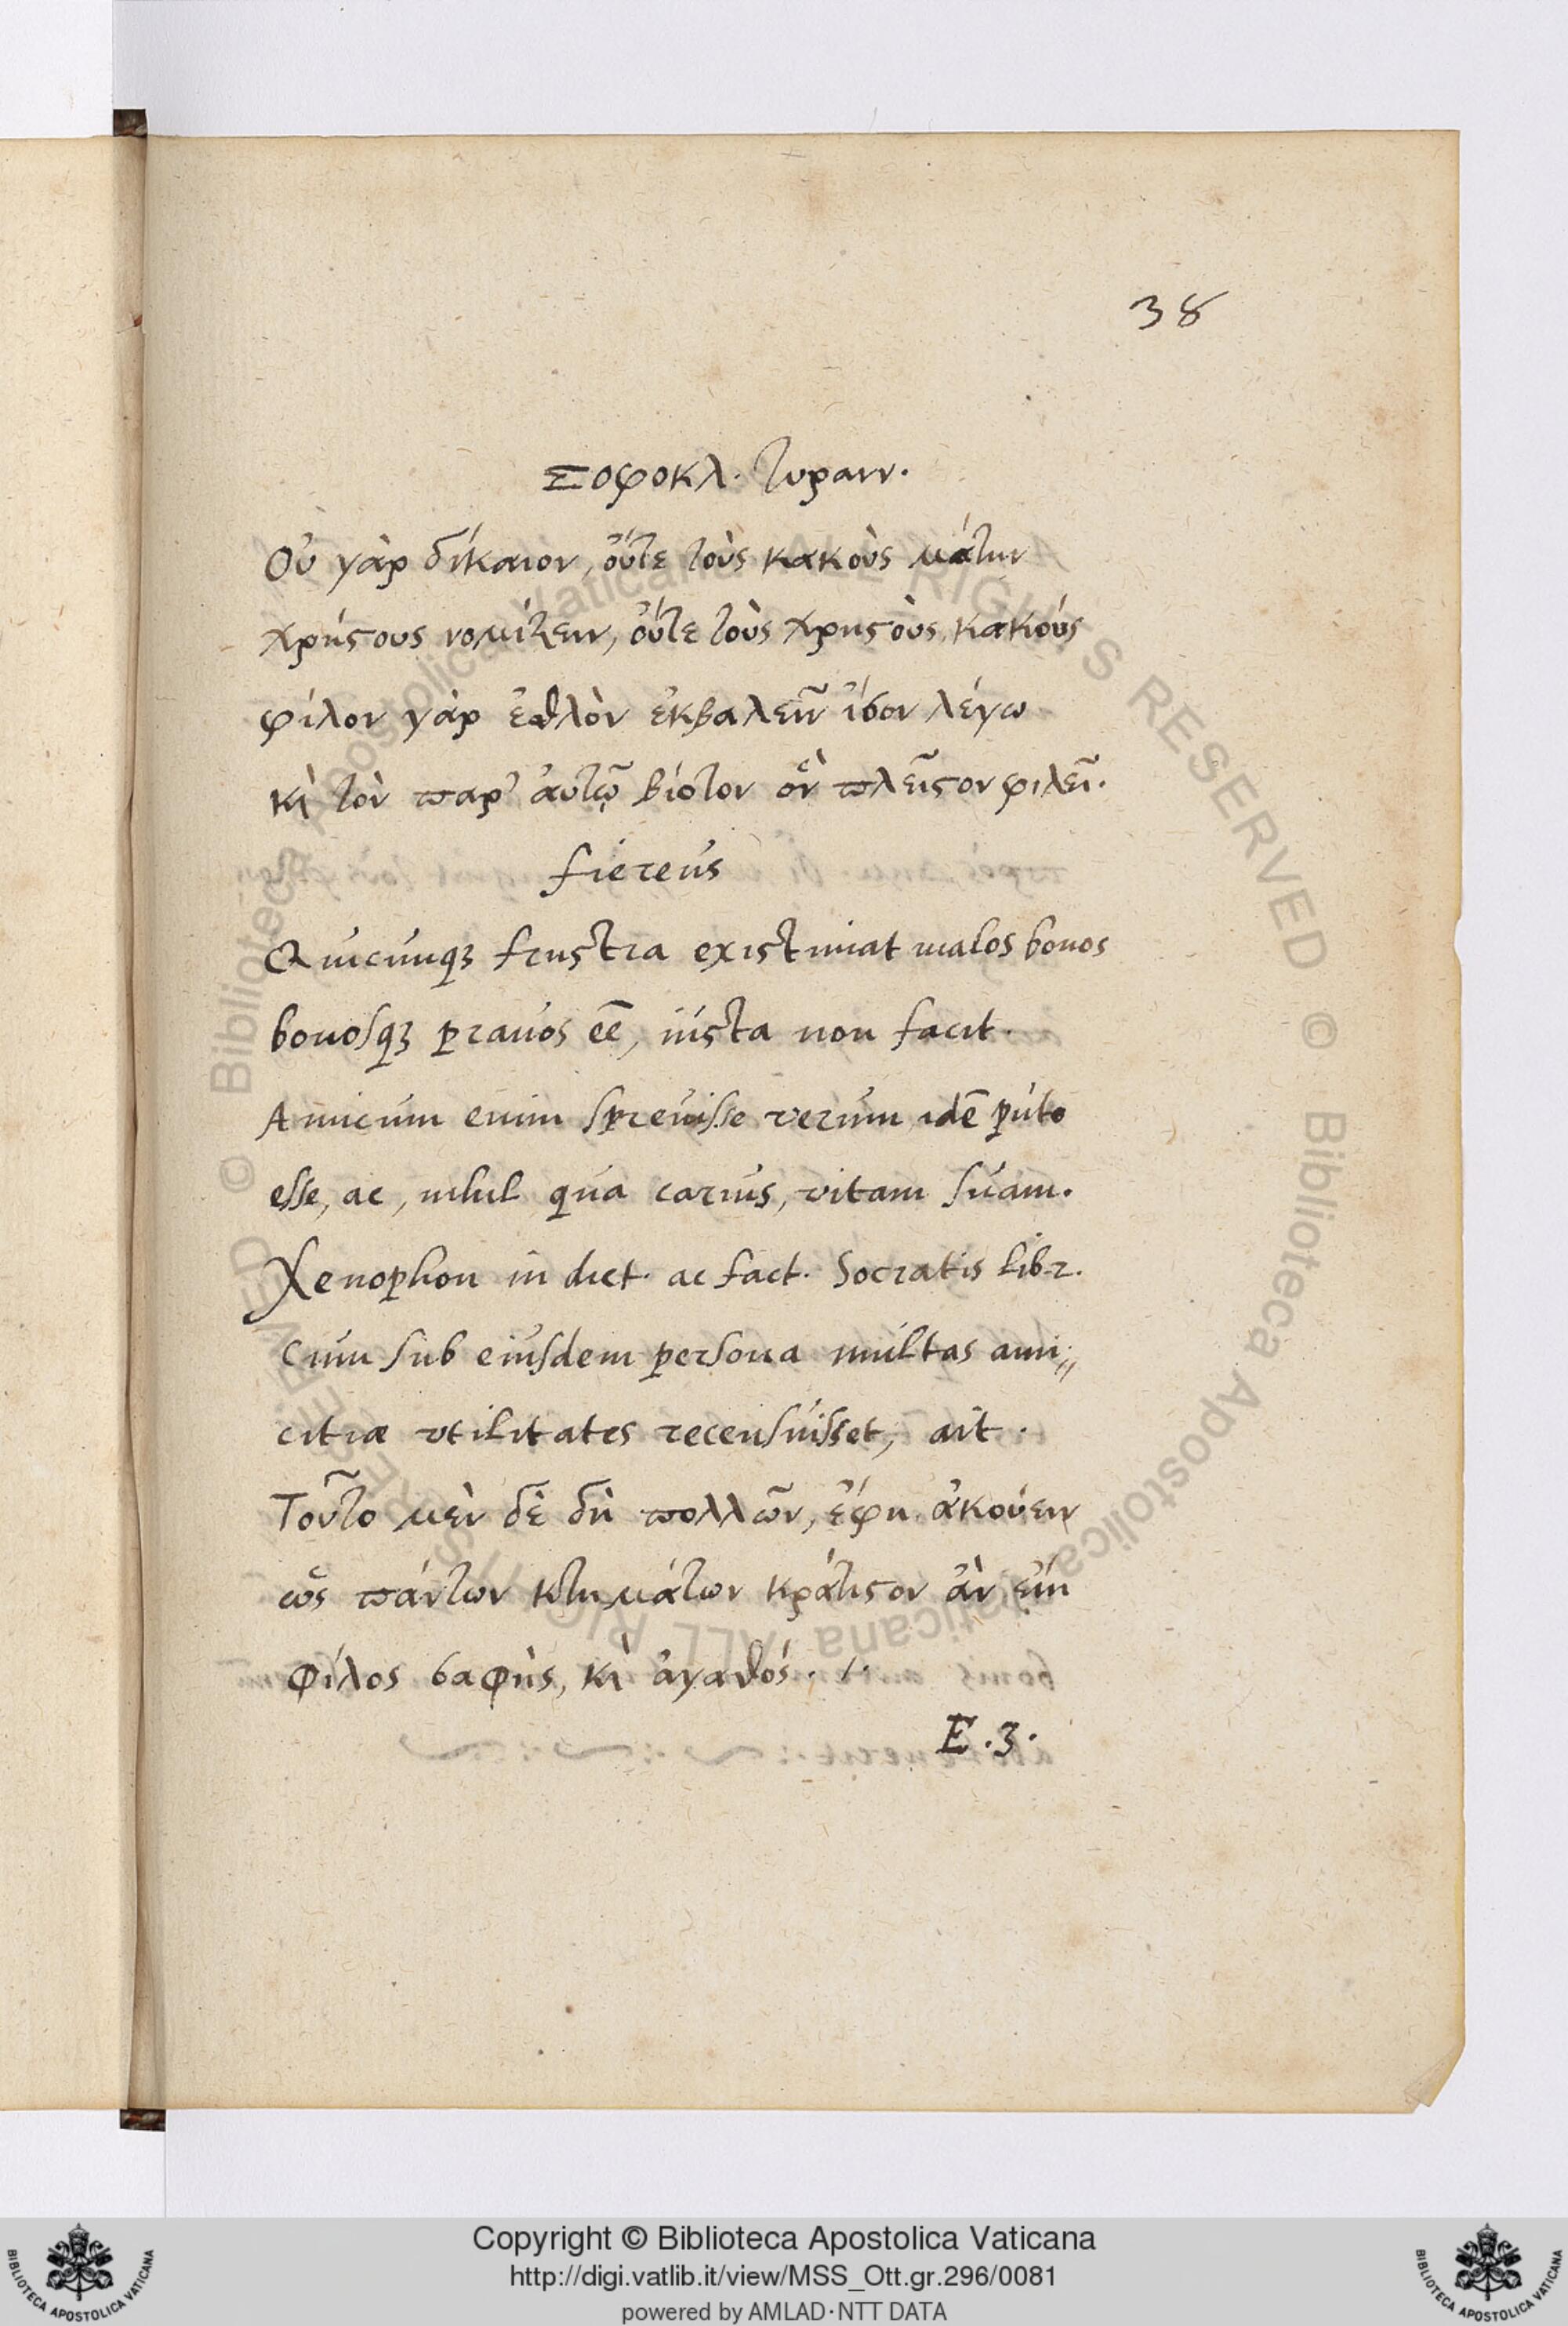 38
Σοφοκλ. τυραnν.
Οὐ γὰρ δίκαιον, οὔτε τοὺς κακοὺς μάτην
χρήςους νομίζειν, οὔτε τοὺς χρηςοὺς, κακούς
φίλον γὰρ ἐθλὸν ἐκβαλεῖν ἴσον λέγω
κὶ τὸν παρ' ἀυτῷ βίοτον ὃν πλεῖςον φιλεῖ.
fiereus
Quicunqꝫ frustra existimat malos bonos
bonosqꝫ prauos eē, iusta non facit.
Amicum enim spreuisse verum, idē puto
esse, ac, nihil qua carius, vitam suam.
Xenophon in dict. ac fact. Socratis lib. 2.
Cum sub eiusdem persona multas ami,,
citiæ vtilitates recensuisset, ait.
Τοῦτο μὲν δὲ δὴ πολλῶν, ἔφη ἀκούειν
ὡς πάντων κτημάτων κράτιςον ἂν εἴη
Φίλος σαφὴς, κὶ ἀγαθός. /.
E. 3.
Copyright © Biblioteca Apostolica Vaticana
http://digi.vatlib.it/view/MSS_Ott.gr.296/0081
powered by AMLAD·NTT DATA
BIBLIOTECA APOSTOLICA VATICANA
BIBLIOTECA APOSTOLICA VATICANA